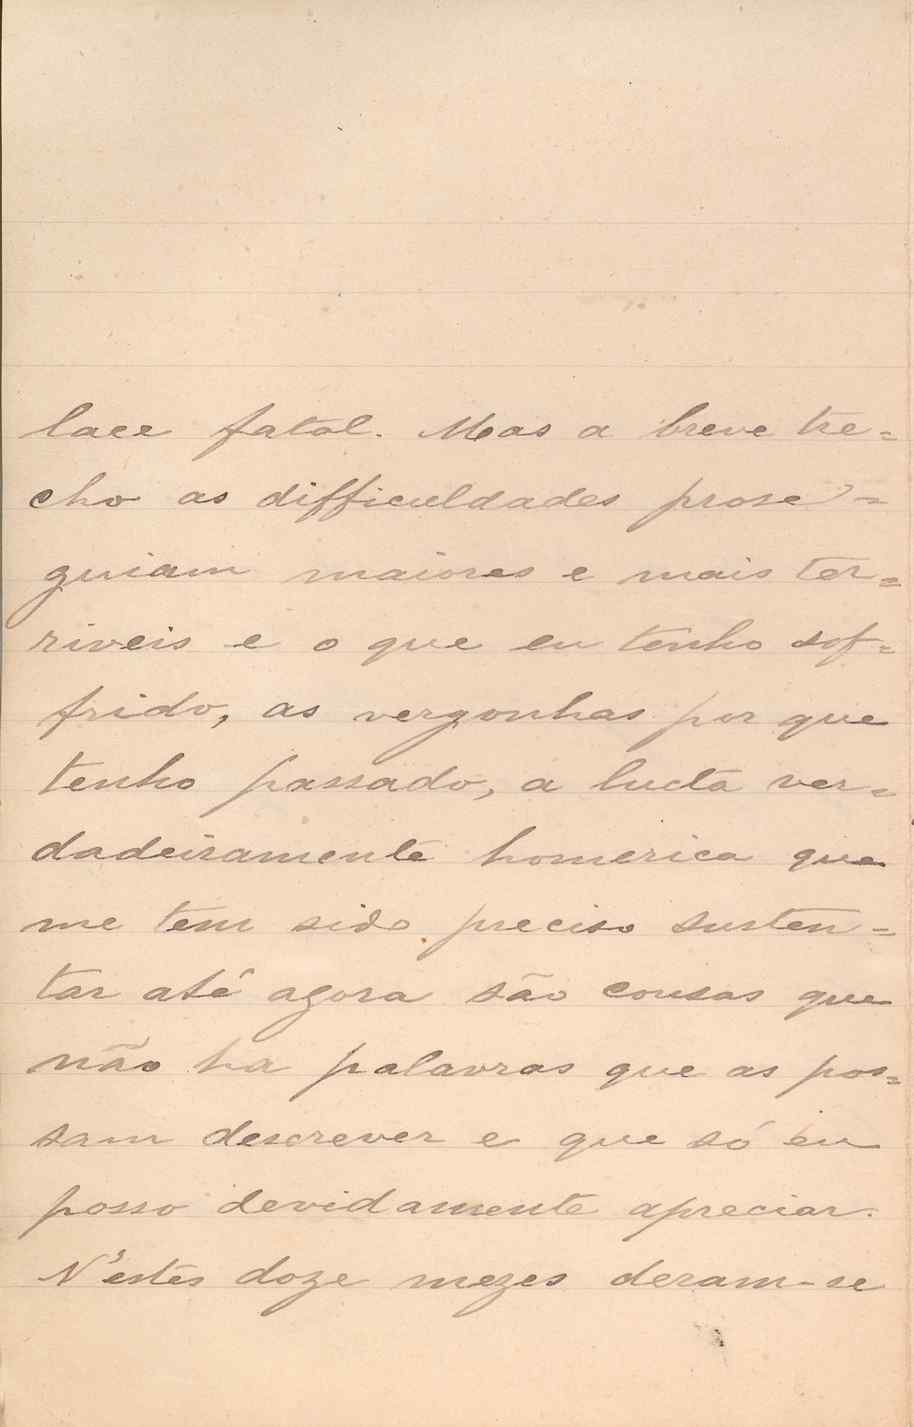 lace fatal. Mas a breve tre=
cho as difficuldades prose=
guiam maiores e mais ter=
riveis e o que eu tenho sof=
frido, as vergonhas por que
tenho passado, a lucta ver=
dadeiramente homerica que
me tem sido preciso susten=
tar até agora são cousas que
não ha palavras que as pos=
sam descrever e que só eu
posso devidamente apreciar.
N'estes doze mezes deram-se